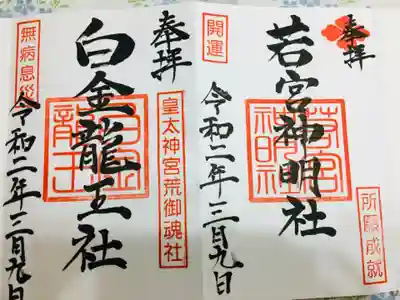 奉拝
開運
若宮神明社
若宮神明社
所願成就
令和二年三月九日
奉拝
無病息災
白金龍王社
白金龍王
皇太神宮荒御魂社
令和二年三月九日